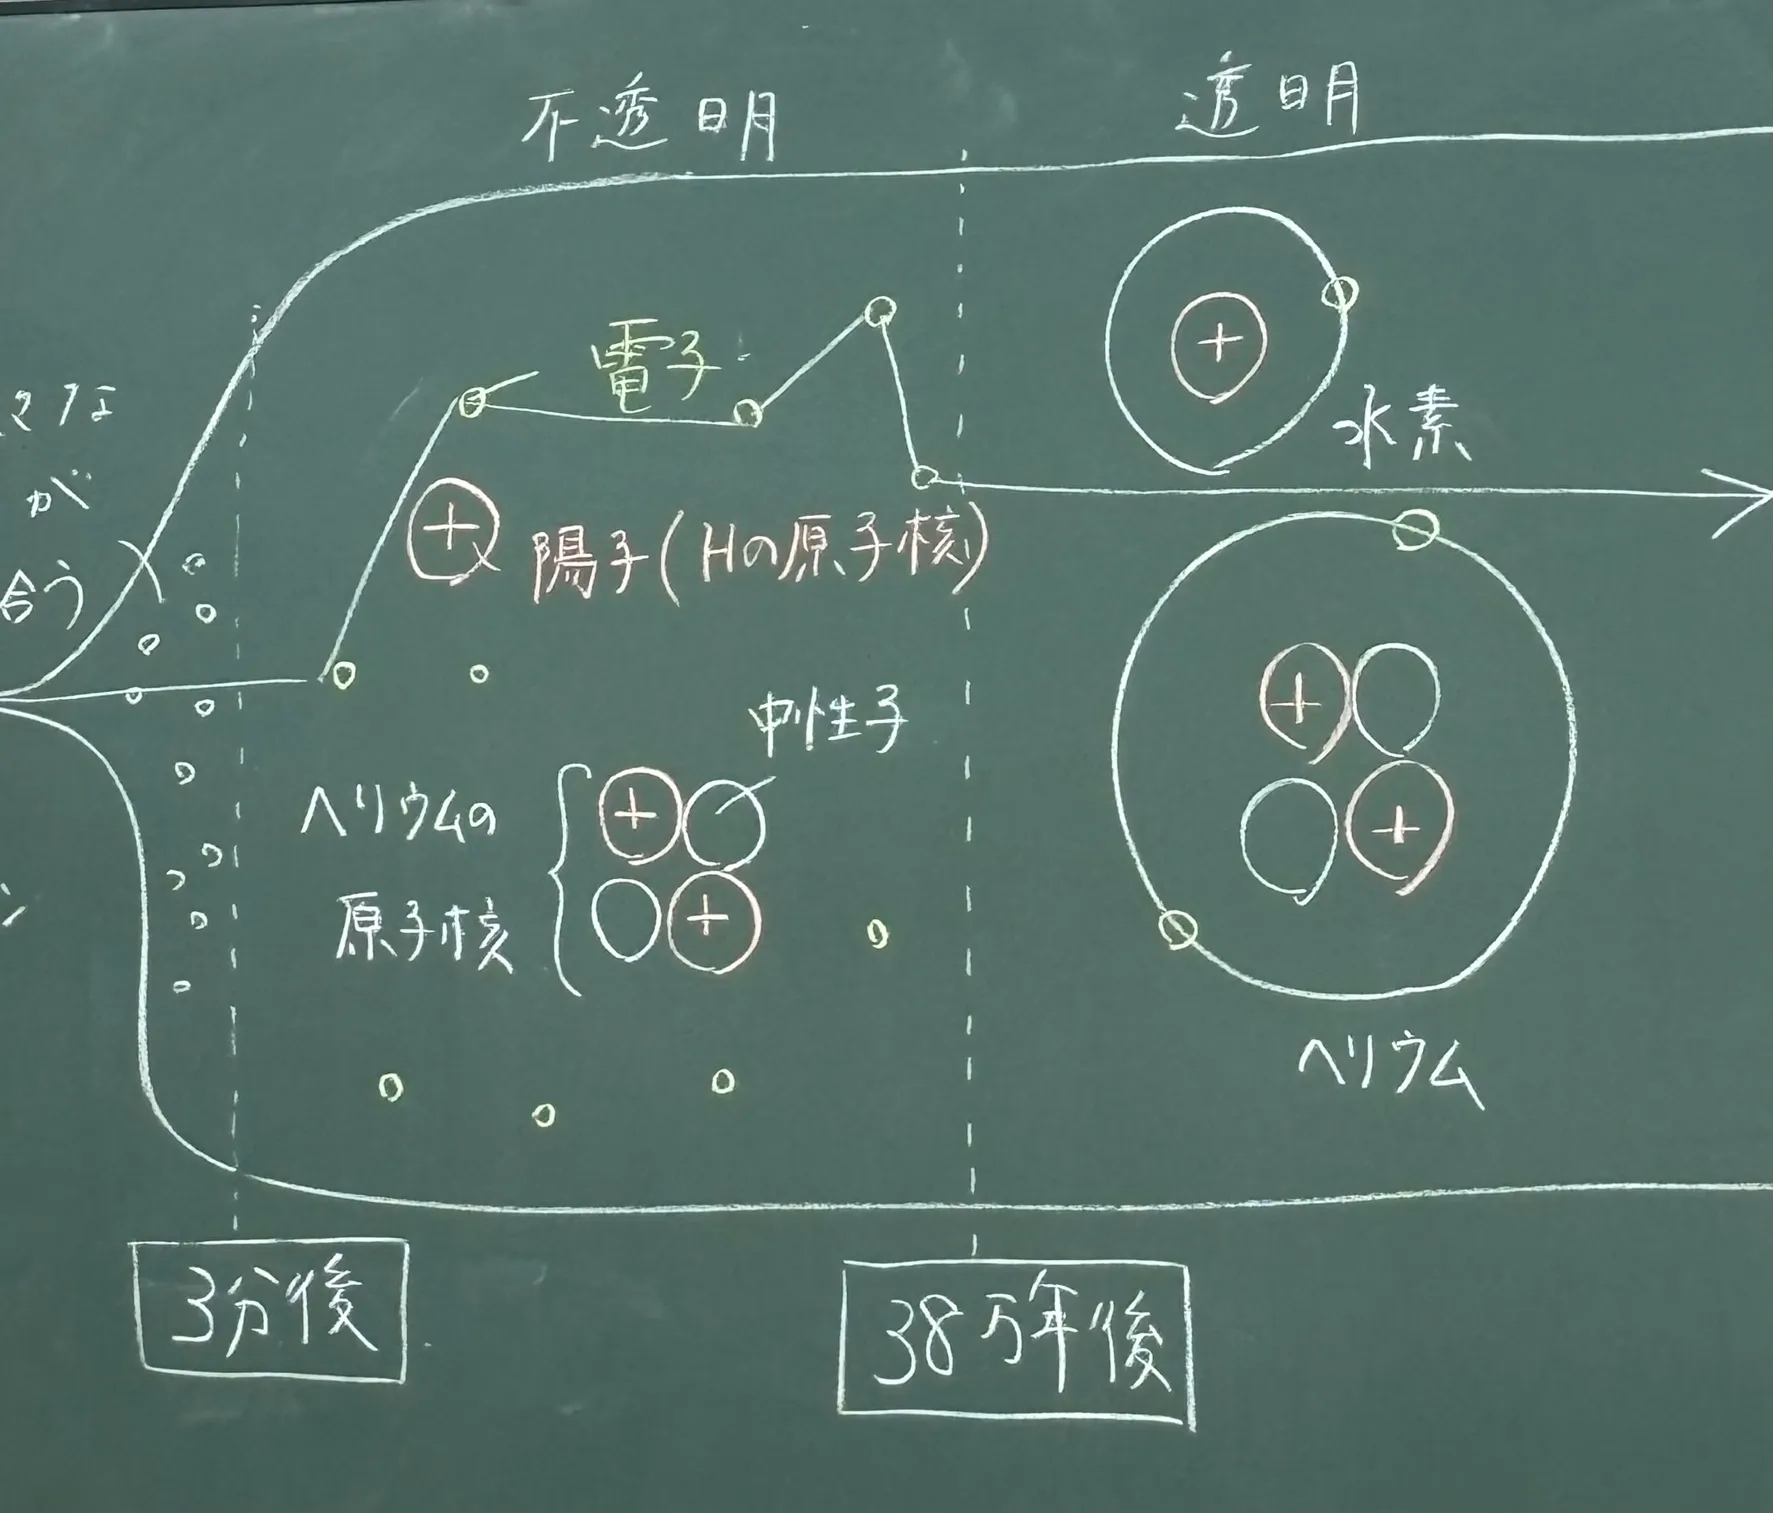 不透明
透明
電子
が
合う
水素
陽子(Hの原子核)
中性子
ヘリウムの
原子核
ヘリウム
3分後
38万年後